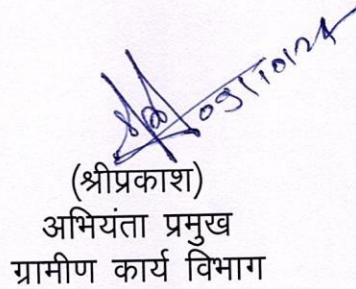 09/10/24
(श्रीप्रकाश)
अभियंता प्रमुख
ग्रामीण कार्य विभाग